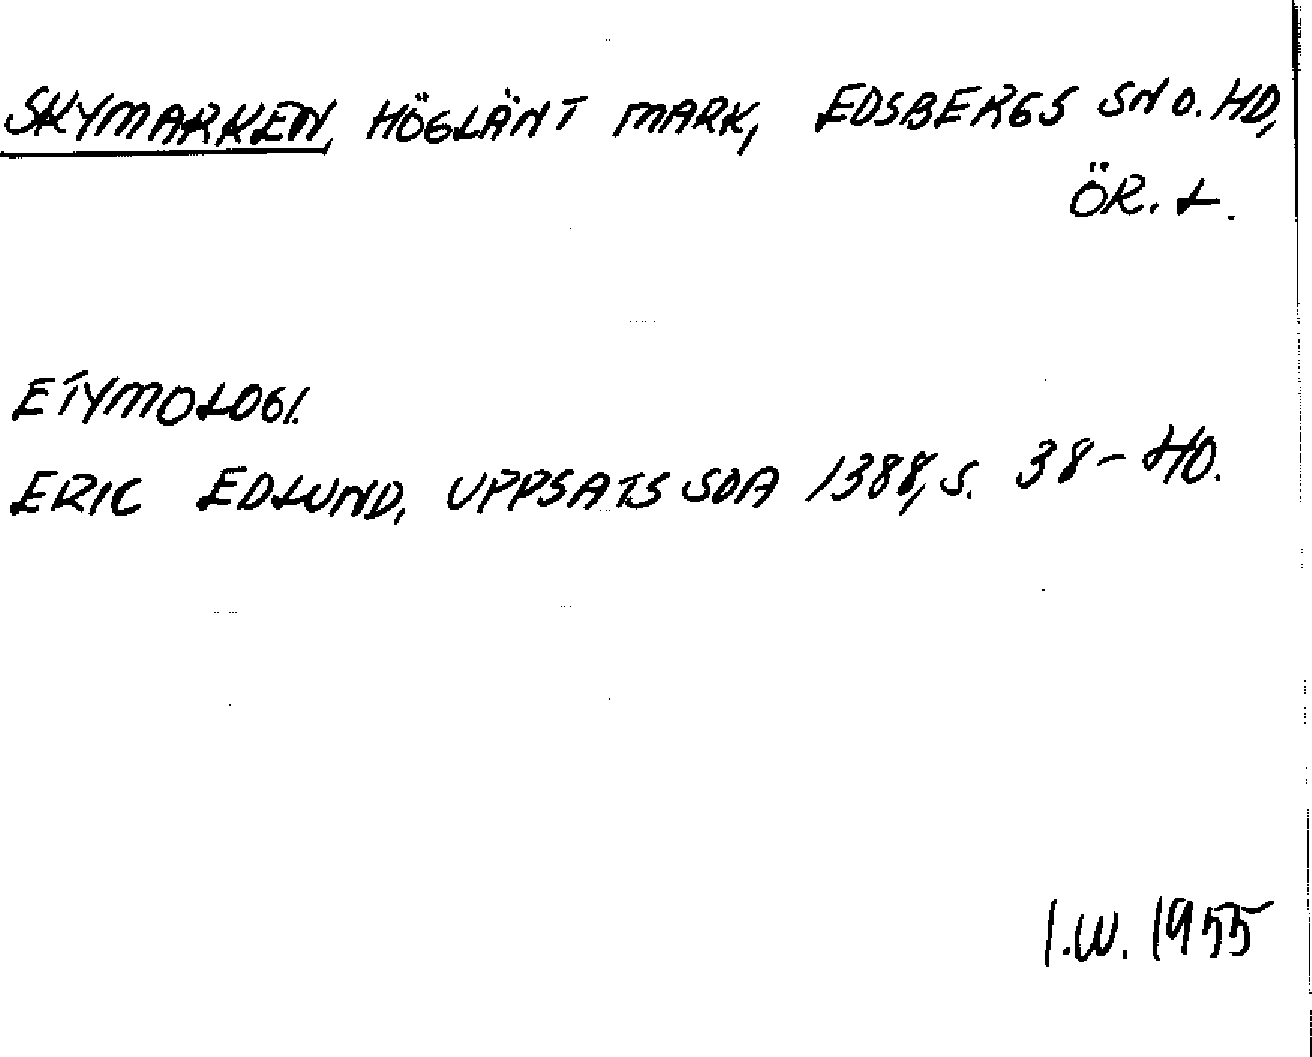 SKYMARKEN, HÖGLÄNT MARK, EDSBERGS SN O. HD,
ÖR. L.
ETYMOLOGI.
ERIC EDLUND, UPPSATS SOA 1388, S. 38-40.
I.W. 1955